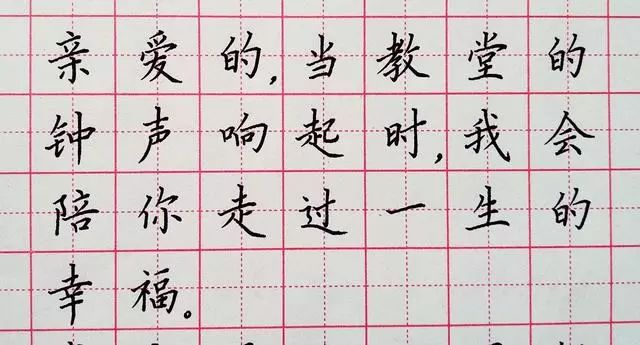 亲爱的,当教堂的
钟声响起时,我会
陪你走过一生的
幸福。